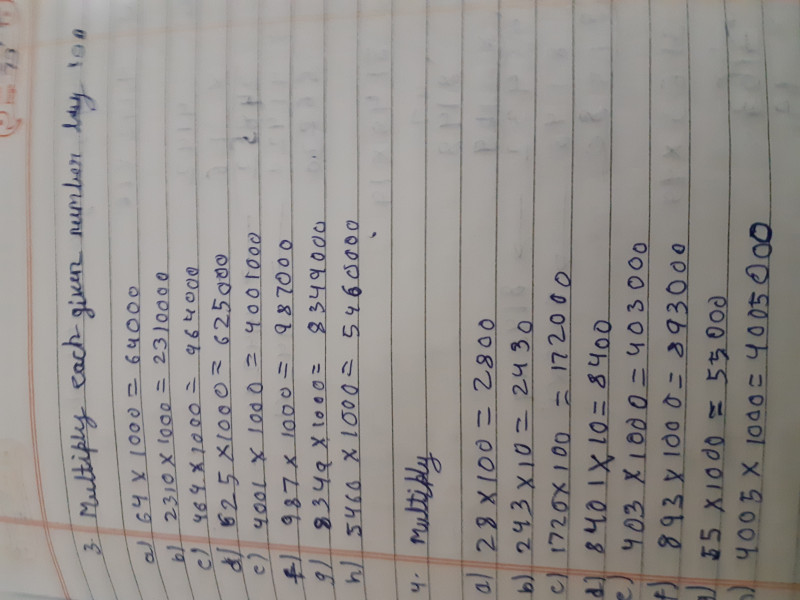 3. Multiply each given number by 100
a) 64 x 1000 = 64000
b) 2310 x 1000 = 2310000
c) 464 x 1000 = 464000
d) 625 x 1000 = 625000
e) 4001 x 1000 = 4001000
f) 987 x 1000 = 987000
g) 8349 x 1000 = 8349000
h) 5460 x 1000 = 5460000
4. Multiply
a) 28 x 100 = 2800
b) 243 x 10 = 2430
c) 1720 x 100 = 172000
d) 8401 x 10 = 8400
e) 403 x 1000 = 403000
f) 893 x 1000 = 893000
g) 55 x 1000 = 55000
h) 4005 x 1000 = 4005000